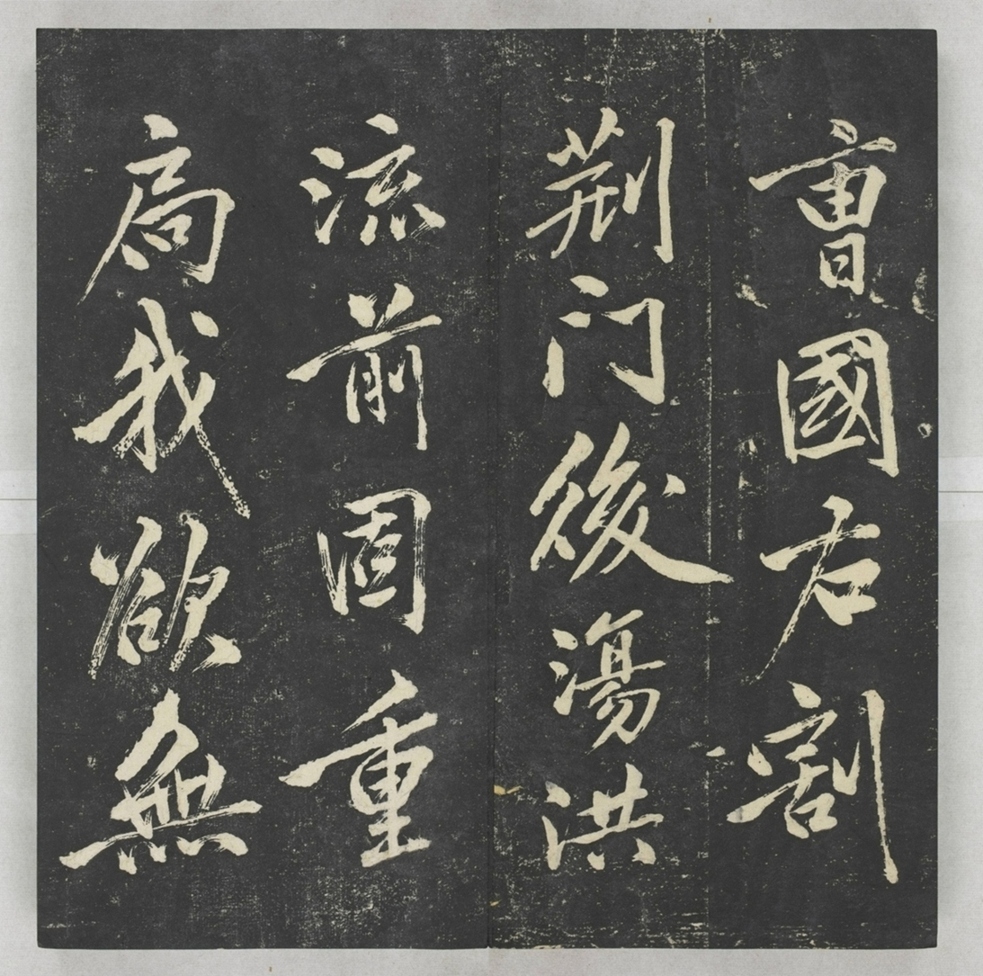 曹國右割
荆门後蕩洪
流前固重
扃我欲無